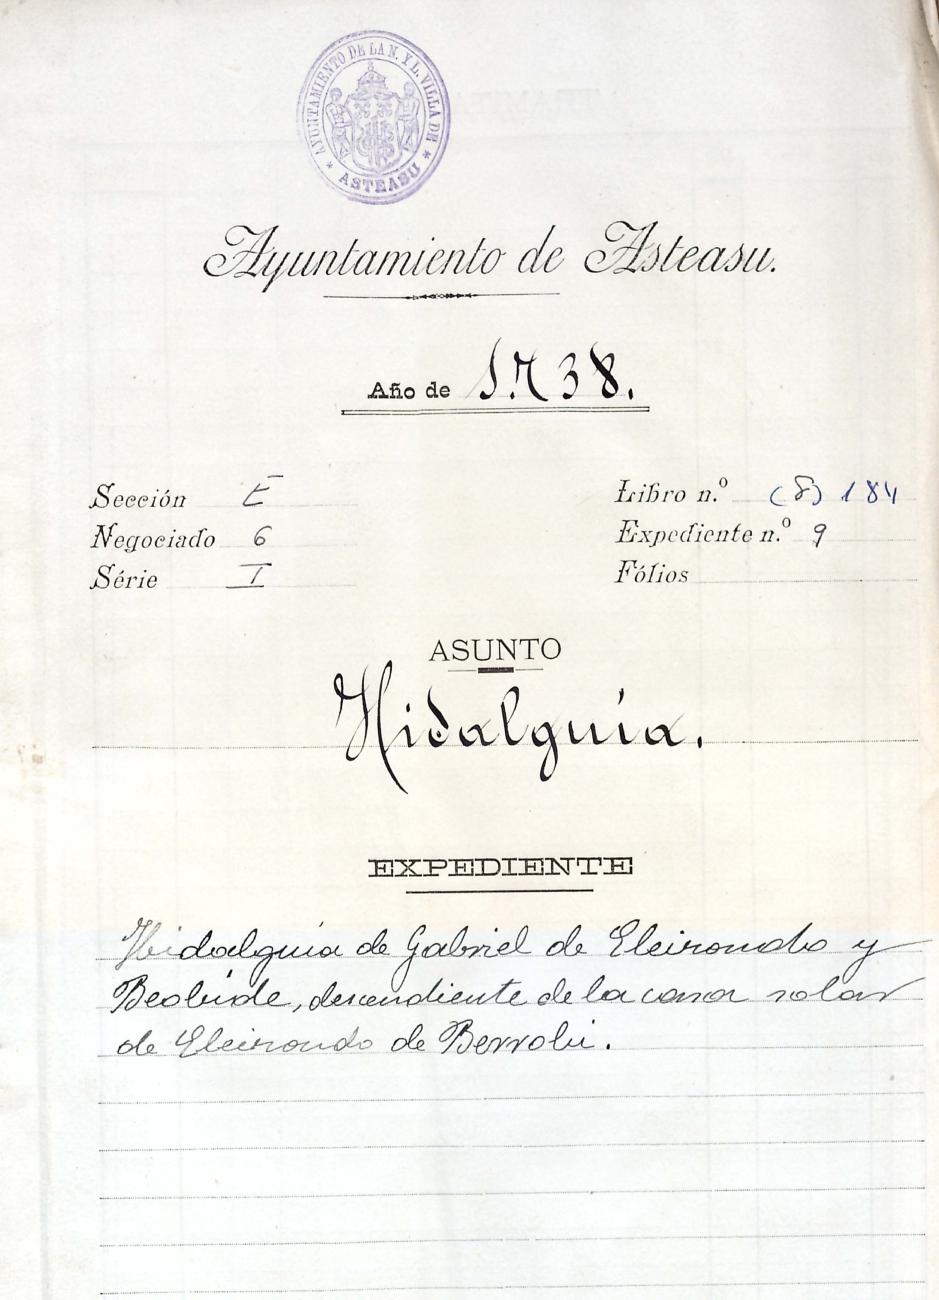 AYUNTAMIENTO DE LA N. Y L. VILLA DE
* ASTEASU *
Ayuntamiento de Asteasu.
Año de 1.738.
Sección E
Negociado 6
Série I
Libro n.º (8) 184
Expediente n.º 9
Fólios
ASUNTO
Hidalguía.
EXPEDIENTE
Hidalguía de Gabriel de Eleizondo y
Beobide, descendiente de la casa solar
de Eleizondo de Berrobi.